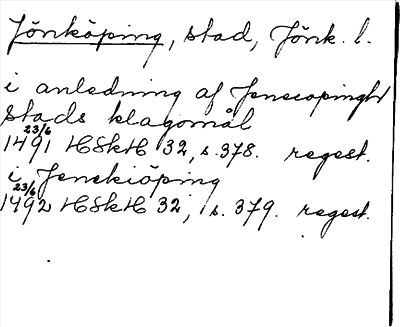 Jönköping, stad, Jönk. l.
i anledning af Jenecopingh
stads klagomål
1491 23/6 HSkH 32, s. 378. regest.
i Jenekiöping
1492 23/6 HSkH 32, s. 379. regest.